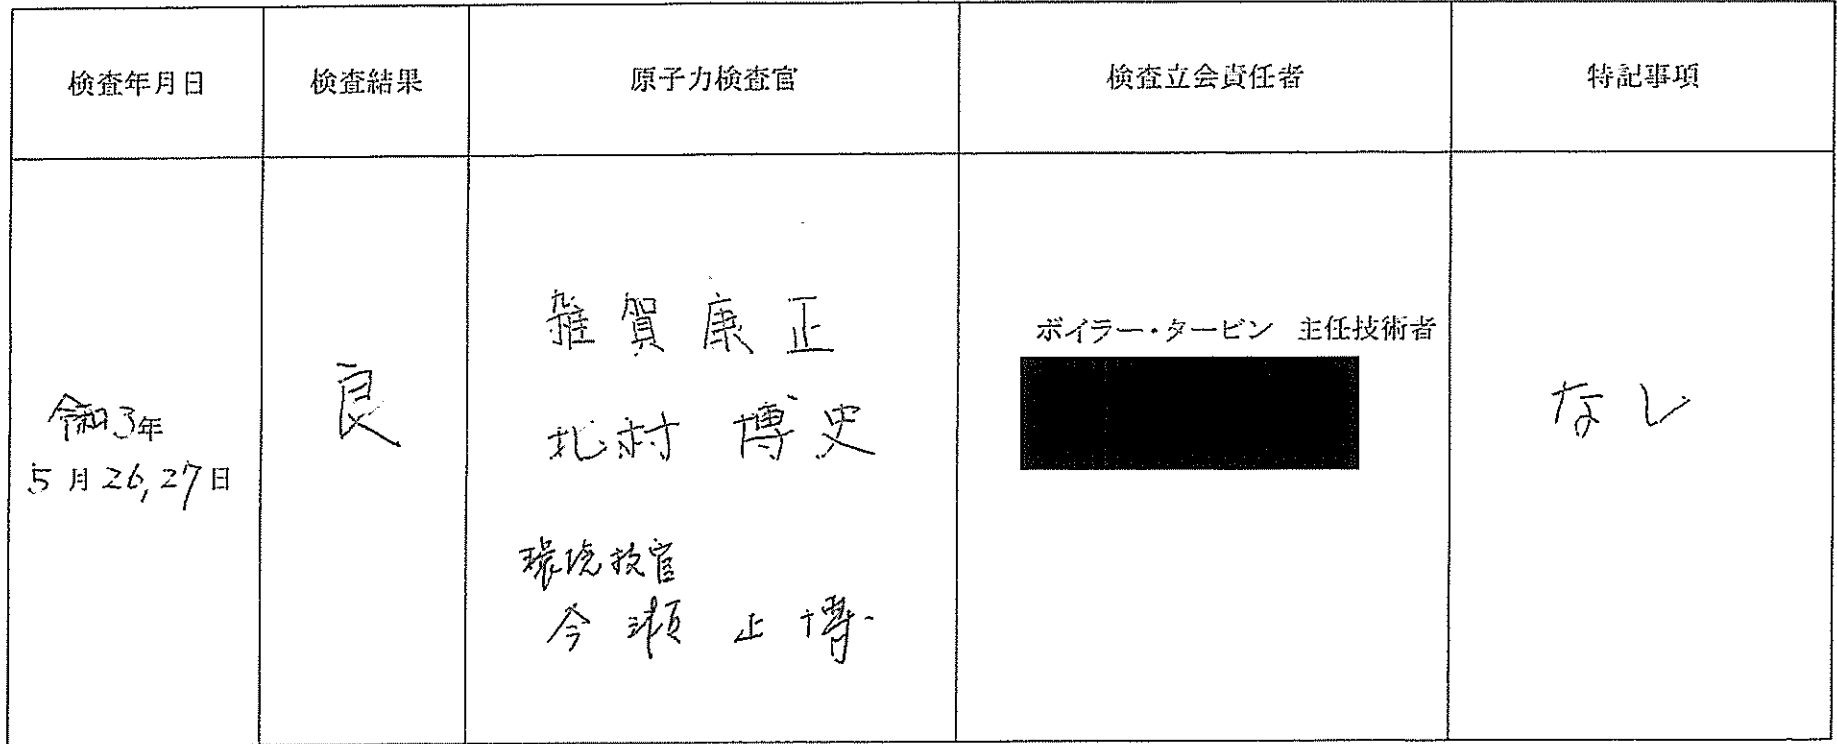 検査年月日 検査結果 原子力検査官 検査立会責任者 特記事項
令和3年
5月26,27日
良
雑賀康正
北村 博史
環境技官
今瀬 正博
ボイラー・タービン 主任技術者
なし